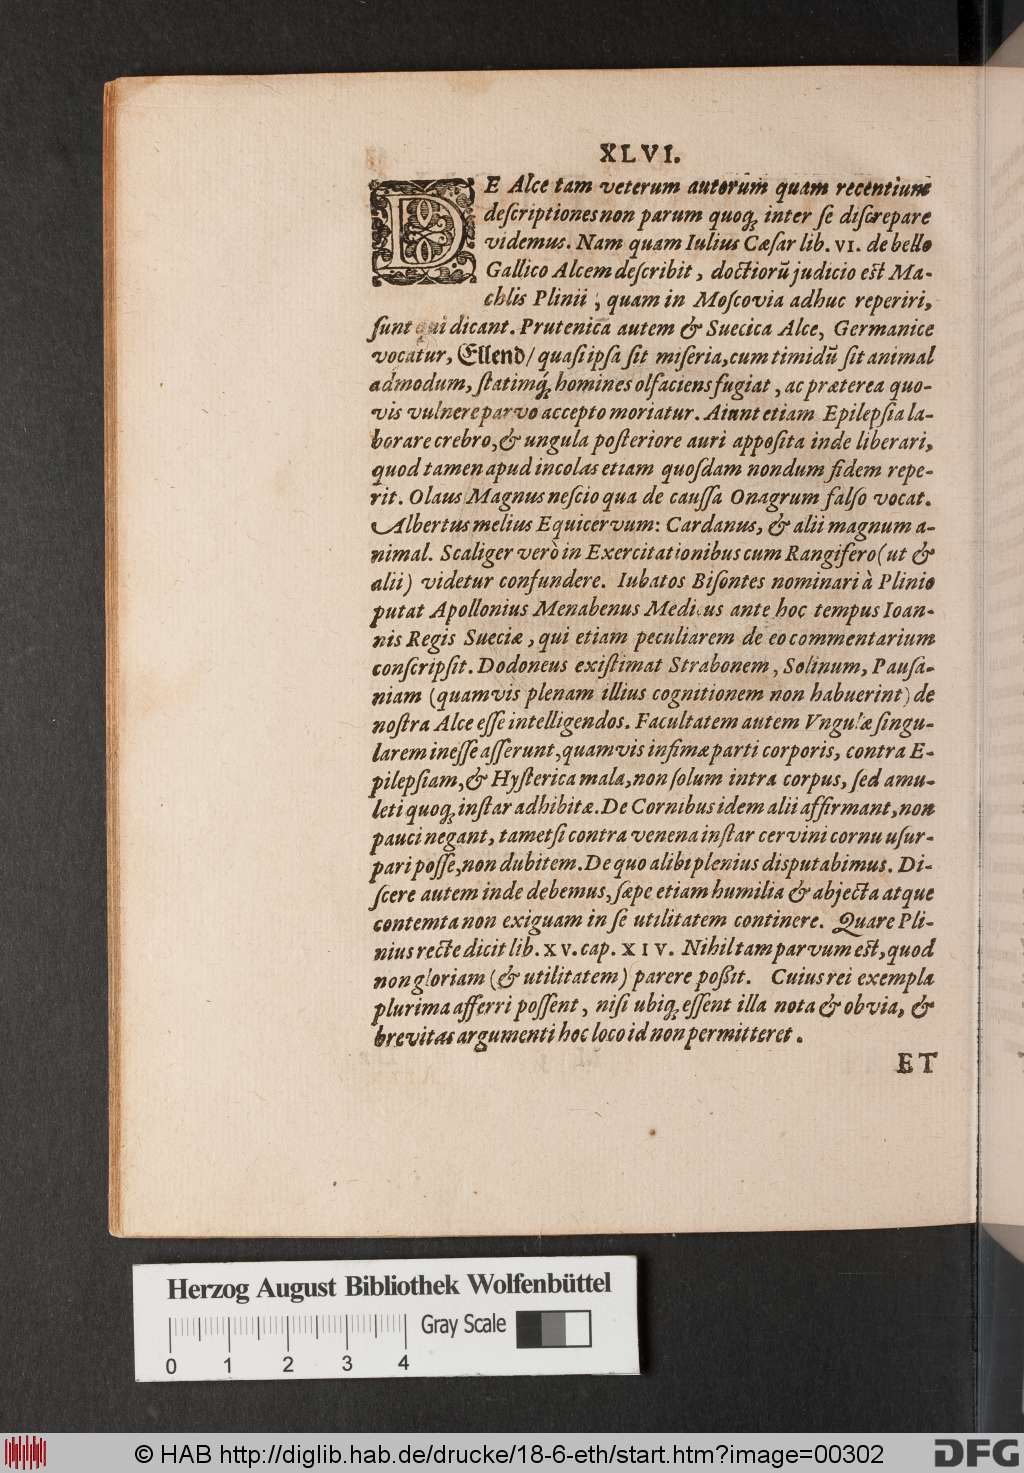 XLVI.
DE Alce tam veterum autorum quam recentium
deſcriptiones non parum quoqꝫ inter ſe diſcrepare
videmus. Nam quam Iulius Cæſar lib. VI. de bello
Gallico Alcem deſcribit, doctiorũ judicio eſt Ma-
chlis Plinii, quam in Moſcovia adhuc reperiri,
ſunt qui dicant. Prutenica autem & Suecica Alce, Germanice
vocatur, Ellend/ quaſi ipſa ſit miſeria, cum timidũ ſit animal
admodum, ſtatimq́ꝫ homines olfaciens fugiat, ac præterea quo-
vis vulnere parvo accepto moriatur. Aiunt etiam Epilepſia la-
borare crebro, & ungula poſteriore auri appoſita inde liberari,
quod tamen apud incolas etiam quoſdam nondum fidem repe-
rit. Olaus Magnus neſcio qua de cauſſa Onagrum falſo vocat.
Albertus melius Equicervum: Cardanus, & alii magnum a-
nimal. Scaliger verò in Exercitationibus cum Rangifero (ut &
alii) videtur confundere. Iubatos Biſontes nominari à Plinio
putat Apollonius Menabenus Medicus ante hoc tempus Ioan-
nis Regis Sueciæ, qui etiam peculiarem de eo commentarium
conſcripſit. Dodoneus exiſtimat Strabonem, Solinum, Pauſa-
niam (quamvis plenam illius cognitionem non habuerint) de
noſtra Alce eſſe intelligendos. Facultatem autem Vngulæ ſingu-
larem ineſſe aſſerunt, quamvis infimæ parti corporis, contra E-
pilepſiam, & Hyſterica mala, non ſolum intra corpus, ſed amu-
leti quoqꝫ inſtar adhibitæ. De Cornibus idem alii affirmant, non
pauci negant, tametſi contra venena inſtar cervini cornu uſur-
pari poſſe, non dubitem. De quo alibi plenius diſputabimus. Di-
ſcere autem inde debemus, ſæpe etiam humilia & abjecta atque
contemta non exiguam in ſe utilitatem continere. Quare Pli-
nius recte dicit lib. XV. cap. XIV. Nihil tam parvum eſt, quod
non gloriam (& utilitatem) parere poßit. Cuius rei exempla
plurima afferri poſſent, niſi ubiqꝫ eſſent illa nota & obvia, &
brevitas argumenti hoc loco id non permitteret.
ET
Herzog August Bibliothek Wolfenbüttel
Gray Scale
0 1 2 3 4
© HAB http://diglib.hab.de/drucke/18-6-eth/start.htm?image=00302
DFG